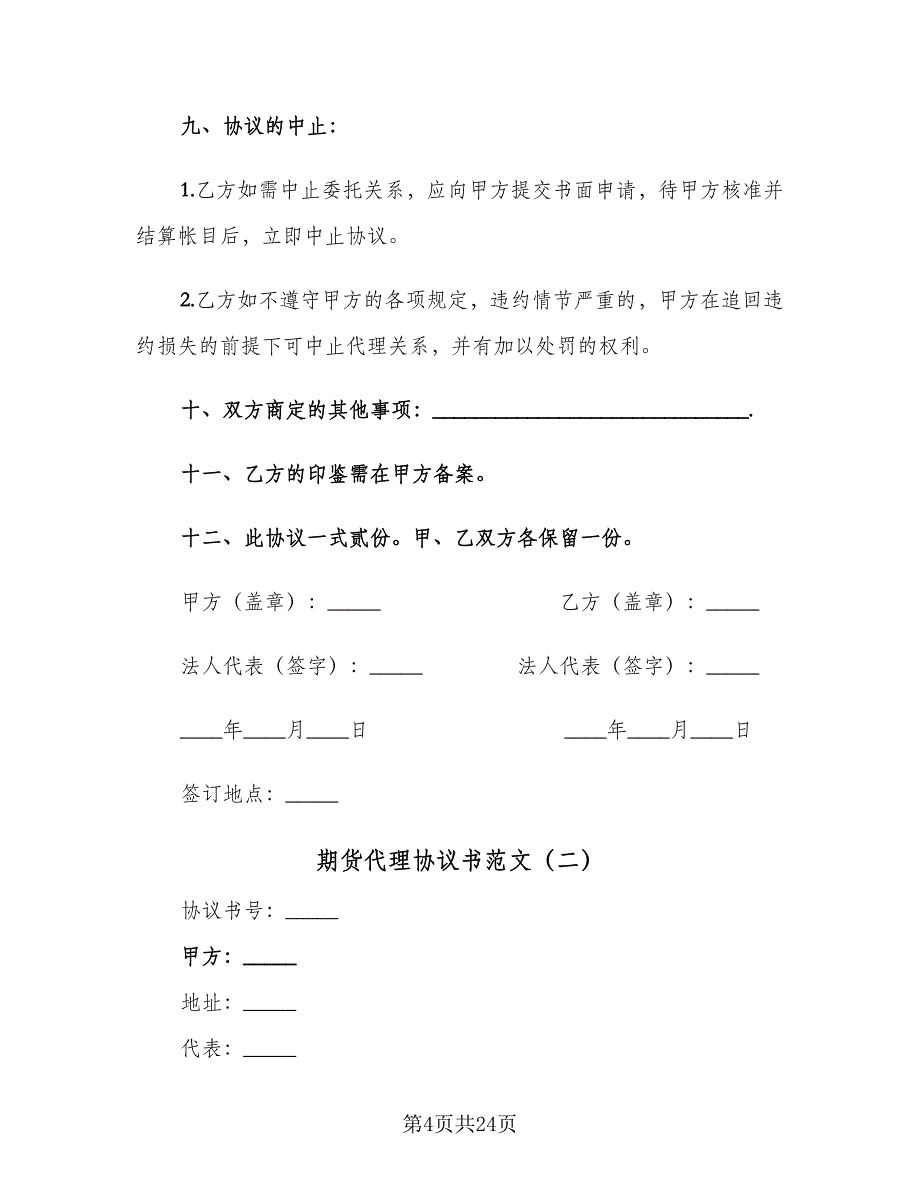 九、协议的中止：
1.乙方如需中止委托关系，应向甲方提交书面申请，待甲方核准并
结算帐目后，立即中止协议。
2.乙方如不遵守甲方的各项规定，违约情节严重的，甲方在追回违
约损失的前提下可中止代理关系，并有加以处罚的权利。
十、双方商定的其他事项：______________________________.
十一、乙方的印鉴需在甲方备案。
十二、此协议一式贰份。甲、乙双方各保留一份。
甲方（盖章）：_____ 乙方（盖章）：_____
法人代表（签字）：_____ 法人代表（签字）：_____
____年____月____日 ____年____月____日
签订地点：_____
期货代理协议书范文（二）
协议书号：_____
甲方：_____
地址：_____
代表：_____
第4页共24页